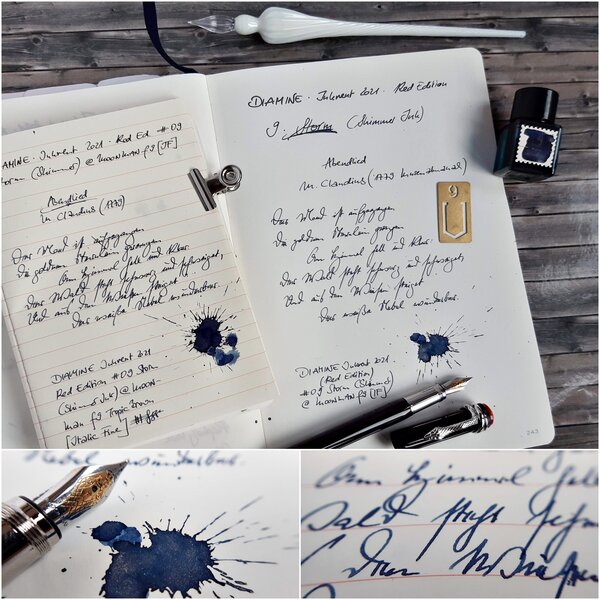 DIAMINE · Inkvent 2021 · Red Ed #09
Storm (Shimmer) @ MOONMAN F9 [IF]
Abendlied
M. Claudius (1779)
Der Mond ist aufgegangen
Die goldnen Sternlein prangen
Am Himmel hell und klar:
Der Wald steht schwarz und schweiget,
Und aus den Wiesen steiget
Der weiße Nebel wunderbar.
DIAMINE Inkvent 2021
Red Edition #09 Storm
(Shimmer Ink) @ MOON-
MAN F9 Tropic Brown
[Italic Fine]
DIAMINE · Inkvent 2021 · Red Edition
9. Storm (Shimmer Ink)
Abendlied
M. Claudius (1779
Der Mond ist aufgegangen
Die goldnen Sternlein prangen
Am Himmel hell und klar:
Der Wald steht schwarz und schweiget,
Und aus den Wiesen steiget
Der weiße Nebel wunderbar.
DIAMINE Inkvent 2021
(Red Edition)
#09 Storm (Shimmer)
@ MOONMAN F9 [IF]
9
243
Nebel wunderbar.
Am Himmel hell
Wald steht schw
den Wiesen